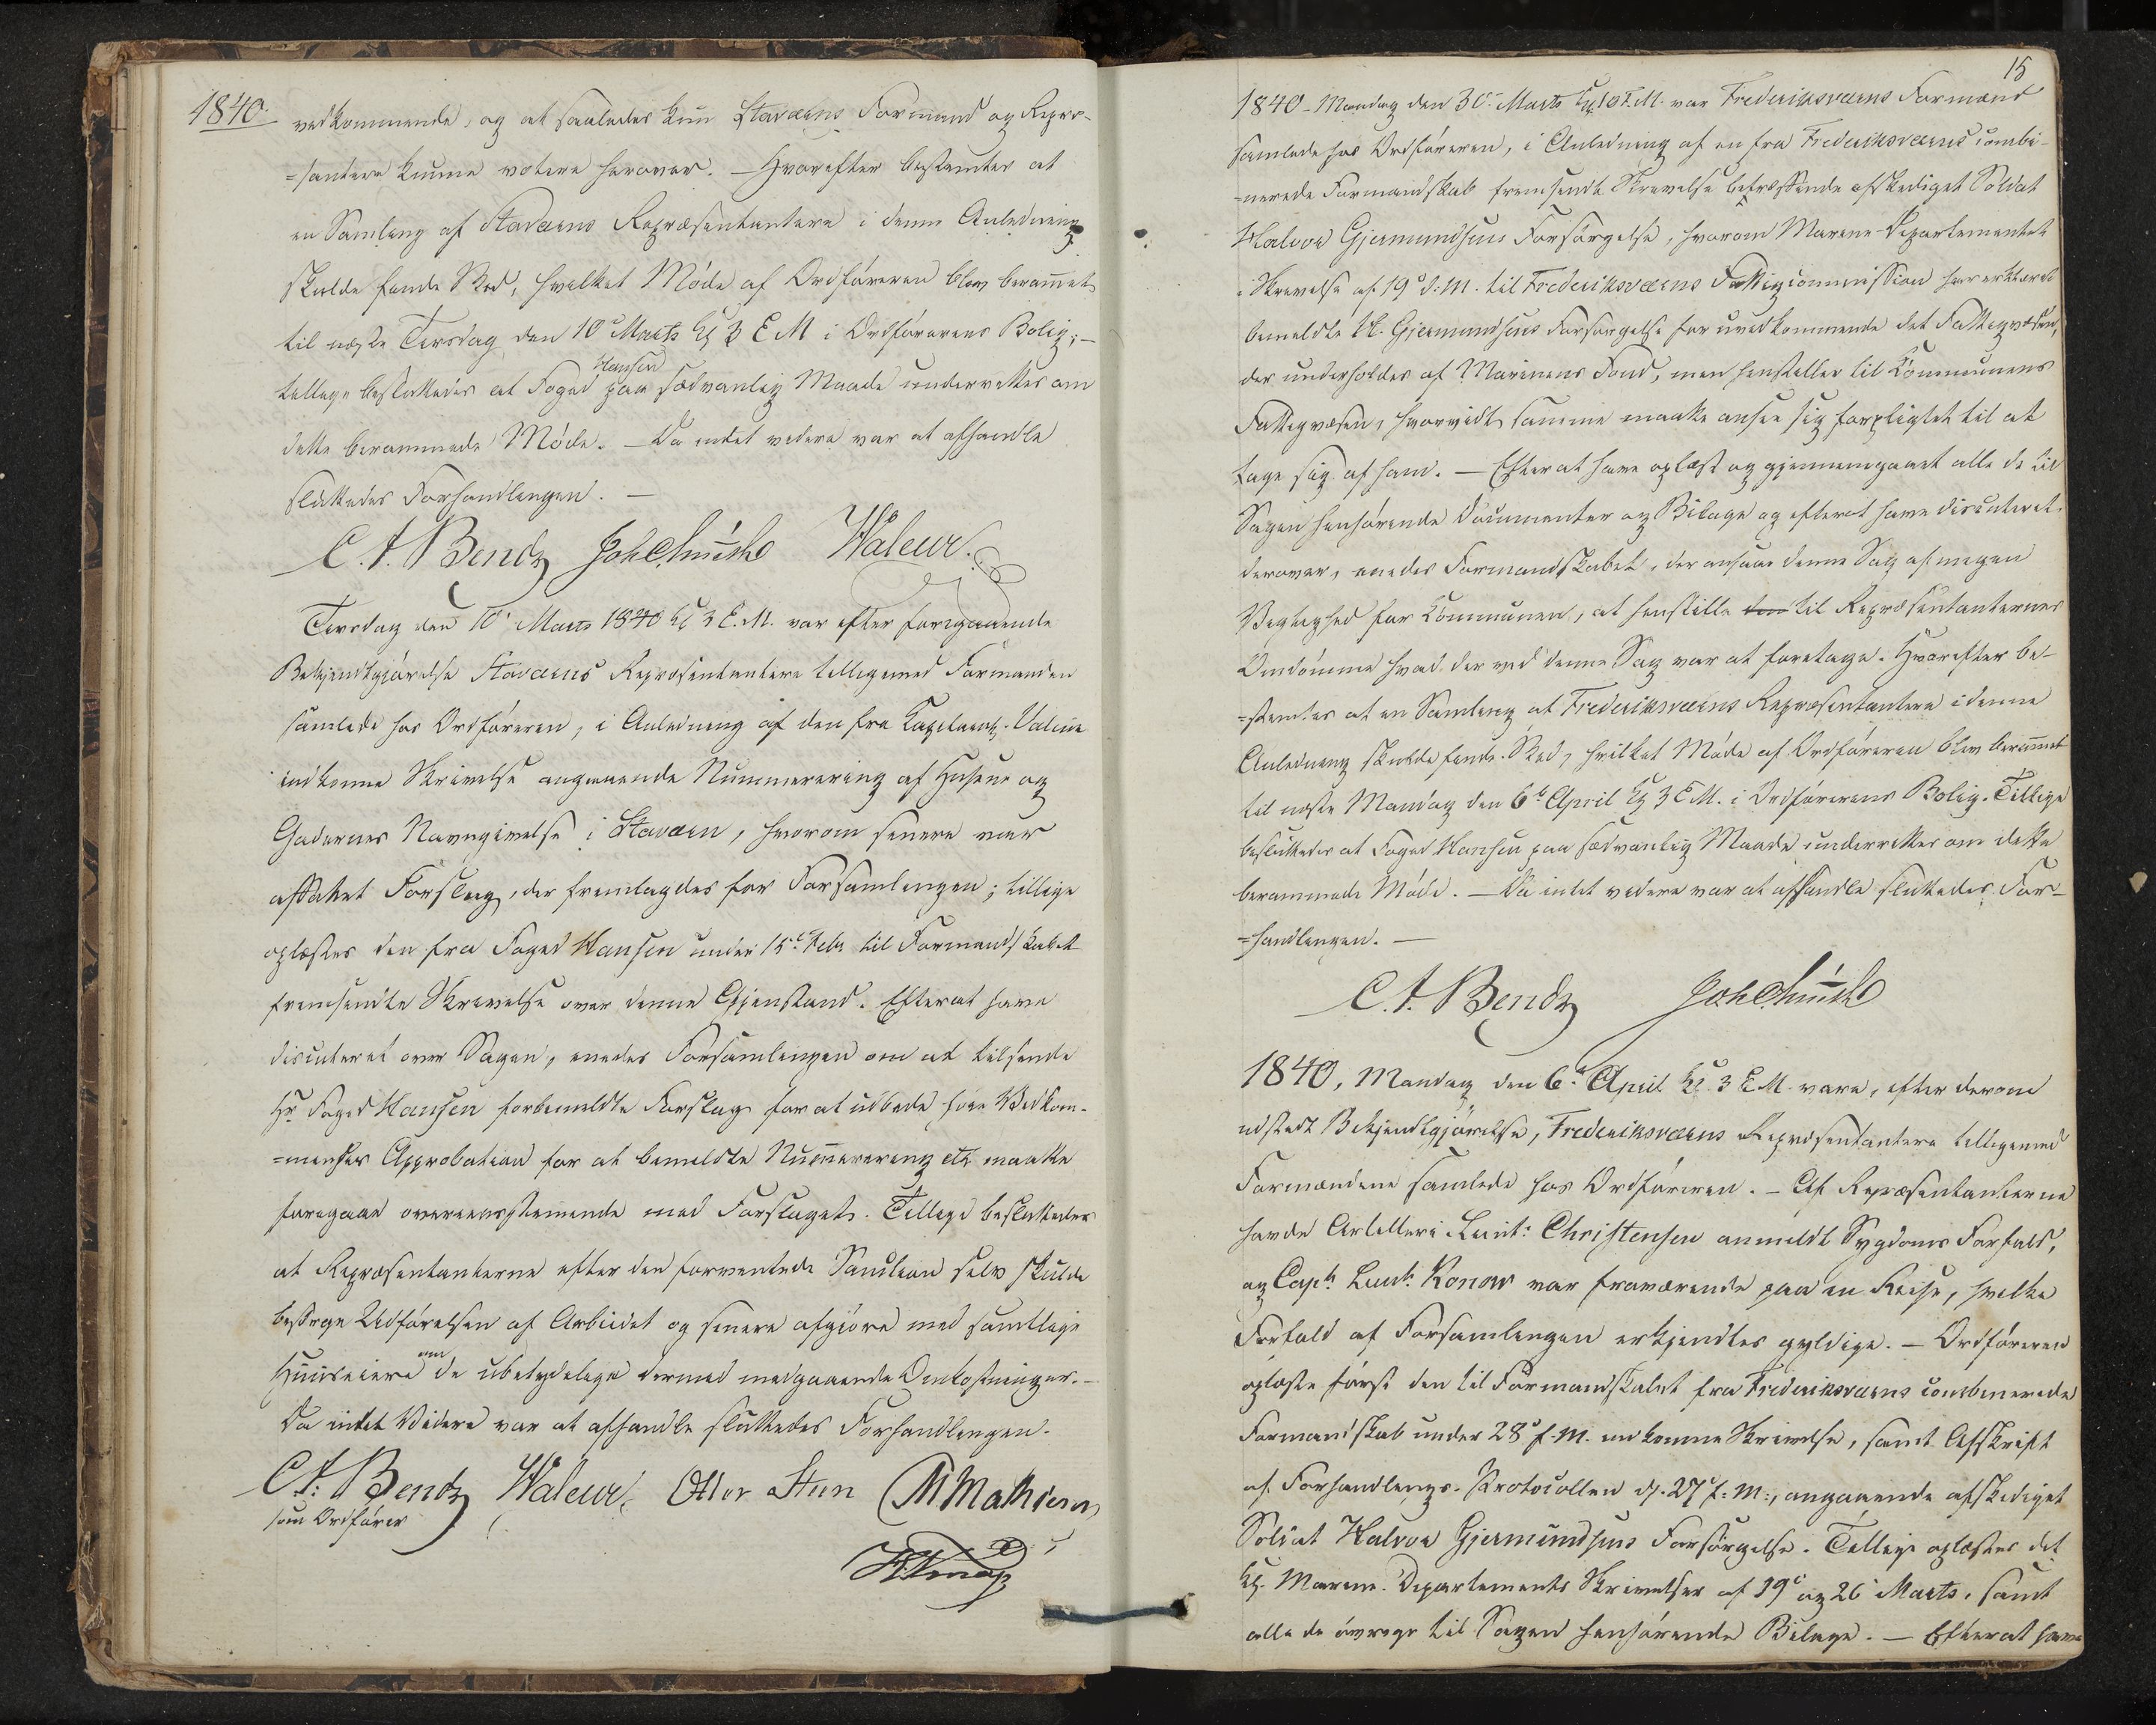 1840.
vedkommende, og at saaledes kun Staværns Formænd og Repræ-
=sentere kunne votere herover. — Hvorefter bestemtes at
en Samling af Staværns Repræsentantere i denne Anledning
skulde finde Sted, hvilket Møde af Ordføreren blev beram̄et
til næste Tirsdag den 10e Marts Kl 3 E M i Ordførerens Bolig; —
tillige besluttedes at Foged Hansen paa sædvanlig Maade underrettes om
dette berammede Møde. — Da intet videre var at afhandle
sluttedes Forhandlingen. —
C. A. Bendz Waleur.
Tirsdag den 10e Marts 1840 Kl 3 E. M. var efter foregaaende
Bekjendtgjørelse Staværns Repræsentantere tilligemed Formanden
samlede hos Ordføreren, i Anledning af den fra Valeur
indkomne Skrivelse angaaende Nummerering af Husene og
Gadernes Navngivelse i Staværn, hvorom senere var
affattet Forslag, der fremlagdes for Forsamlingen; tillige
oplæstes den fra Foged Hansen under 15de Febr. til Formandskabet
fremsendte Skrivelse over denne Gjenstand. Efterat have
discuteret over Sagen, enedes Forsamlingen om at tilsende
Hr Foged Hansen forbemeldte Forslag for at udbede høie Vedkom-
=mendes Approbation for at bemeldte Num̄erering etc maatte
foregaae overeensstemmende med Forslaget. Tillige besluttedes
at Repræsentanterne efter den forventede Sanction selv skulde
besørge Udførelsen af Arbeidet og senere afgjøre med samtlige
Huuseiere om de ubetydelige dermed medgaaende Omkostninger. —
Da intet Videre var at afhandle sluttedes Forhandlingen.
C. A. Bendz Waleur. M Mathiesen
som Ordfører
15
1840 – Mandag den 30e Marts Kl. 10 F. M. var Frederiksværns Formænd
samlede hos Ordføreren, i Anledning af en fra Frederiksværns combi-
=nerede Formandskab fremsendt Skrivelse betræffende afskediget Soldat
Halvor Gjermundsens Forsørgelse, hvorom Marine-Departementet
i Skrivelse af 19e d: M. til Frederiksværns Fattigcommission har erklæret
bemeldte H. Gjermundsens Forsørgelse for uvedkommende det Fattigvæsen,
der underholdes af Marinens Fond, men henstiller til Communens
Fattigvæsen, hvorvidt samme maatte ansee sig forpligtet til at
tage sig af ham. — Efterat have oplæst og gjennemgaaet alle de til
Sagen henhørende Documenter og Bilage og efterat have discuteret
derover, enedes Formandskabet, der ansaae denne Sag af megen
Vigtighed for Communen, at henstille den til Repræsentanternes
Omdømme hvad der ved denne Sag var at foretage. Hvorefter be-
=stemtes at en Samling af Frederiksværns Repræsentantere i denne
Anledning skulde finde Sted, hvilket Møde af Ordføreren blev beram̄et
til næste Mandag den 6te April Kl 3 E M. i Ordførerens Bolig. Tillige
besluttedes at Foged Hansen paa sædvanlig Maade underrettes om dette
berammede Møde. — Da intet videre var at afhandle sluttedes For-
=handlingen. —
C. A. Bendz
1840, Mandag den 6te April Kl. 3 E M. vare, efter derom
udstedt Bekjendtgjørelse, Frederiksværns Repræsentantere tilligemed
Formændene samlede hos Ordføreren. — Af Repræsentanterne
havde Artilleri Leut: Christensen anmeldt Sygdoms Forfald,
og Capt. Leut. Konow var fraværende paa en Reise, hvilke
Forfald af Forsamlingen erkjendtes gyldige. — Ordføreren
oplæste først den til Formandskabet fra Frederiksværns combinerede
Formandskab under 28e f. M. indkomne Skrivelse, samt Afskrift
af Forhandlings-Protocollen d. 27e f: M:, angaaende afskediget
Soldat Halvor Gjermundsens Forsørgelse. Tillige oplæstes det
Kgl. Marine-Departements Skrivelser af 19e og 26e Marts, samt
alle de øvrige til Sagen henhørende Bilage. — Efterat have